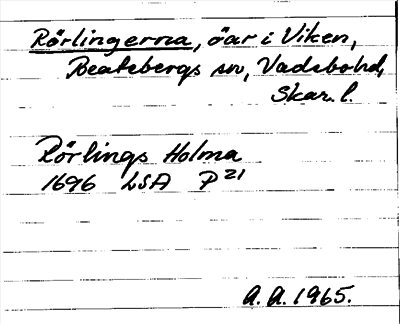 Rörlingerna, öar i Viken,
Beatebergs sn, Vadsbo hd,
Skar. l.
Rörlings Holma
1696 LSA P21
A. A. 1965.